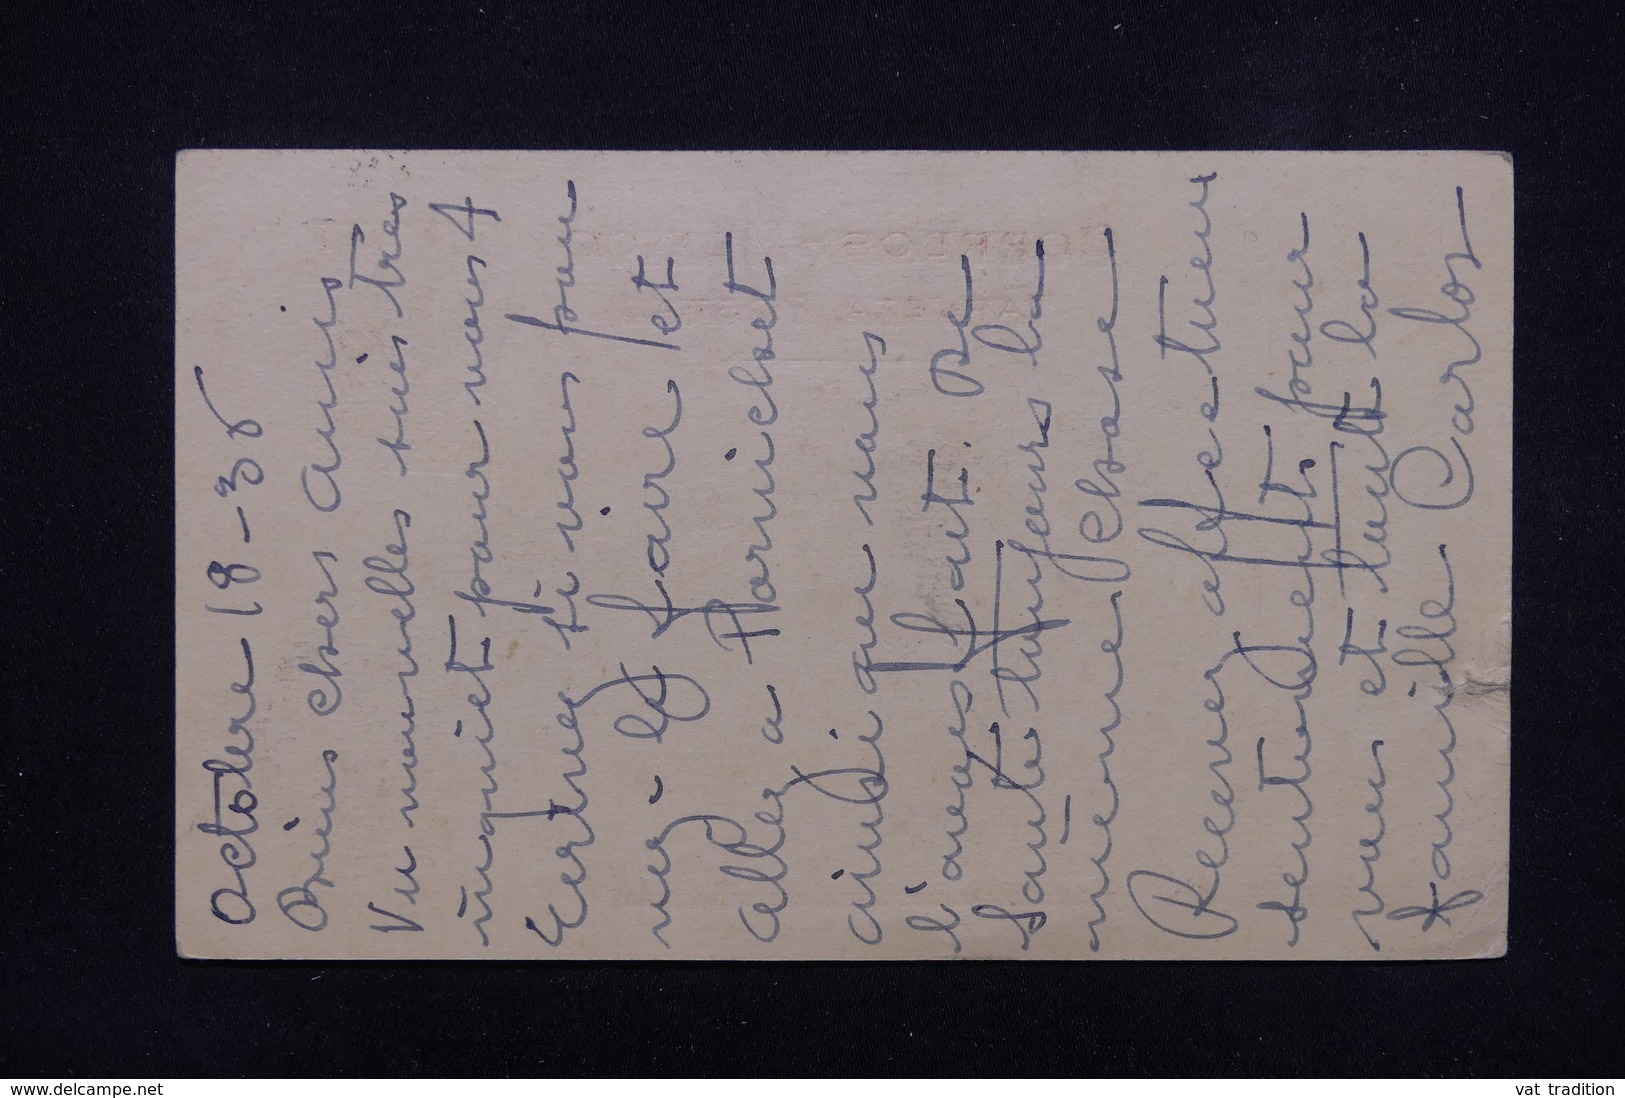 Octobre 18 - 36
Biens chers Amis
Vu nouvelles suis tres
inquiet pour vous 4
Ecrivez si vous pou
vez - le faire et
allez a Pornichet
ainsi que vous
l'aves fait. De
Sante toujours la
même chose
Recevez afectueu
sentiments pour
vous et toute la
famille Carlos
www.delcampe.net
vat tradition